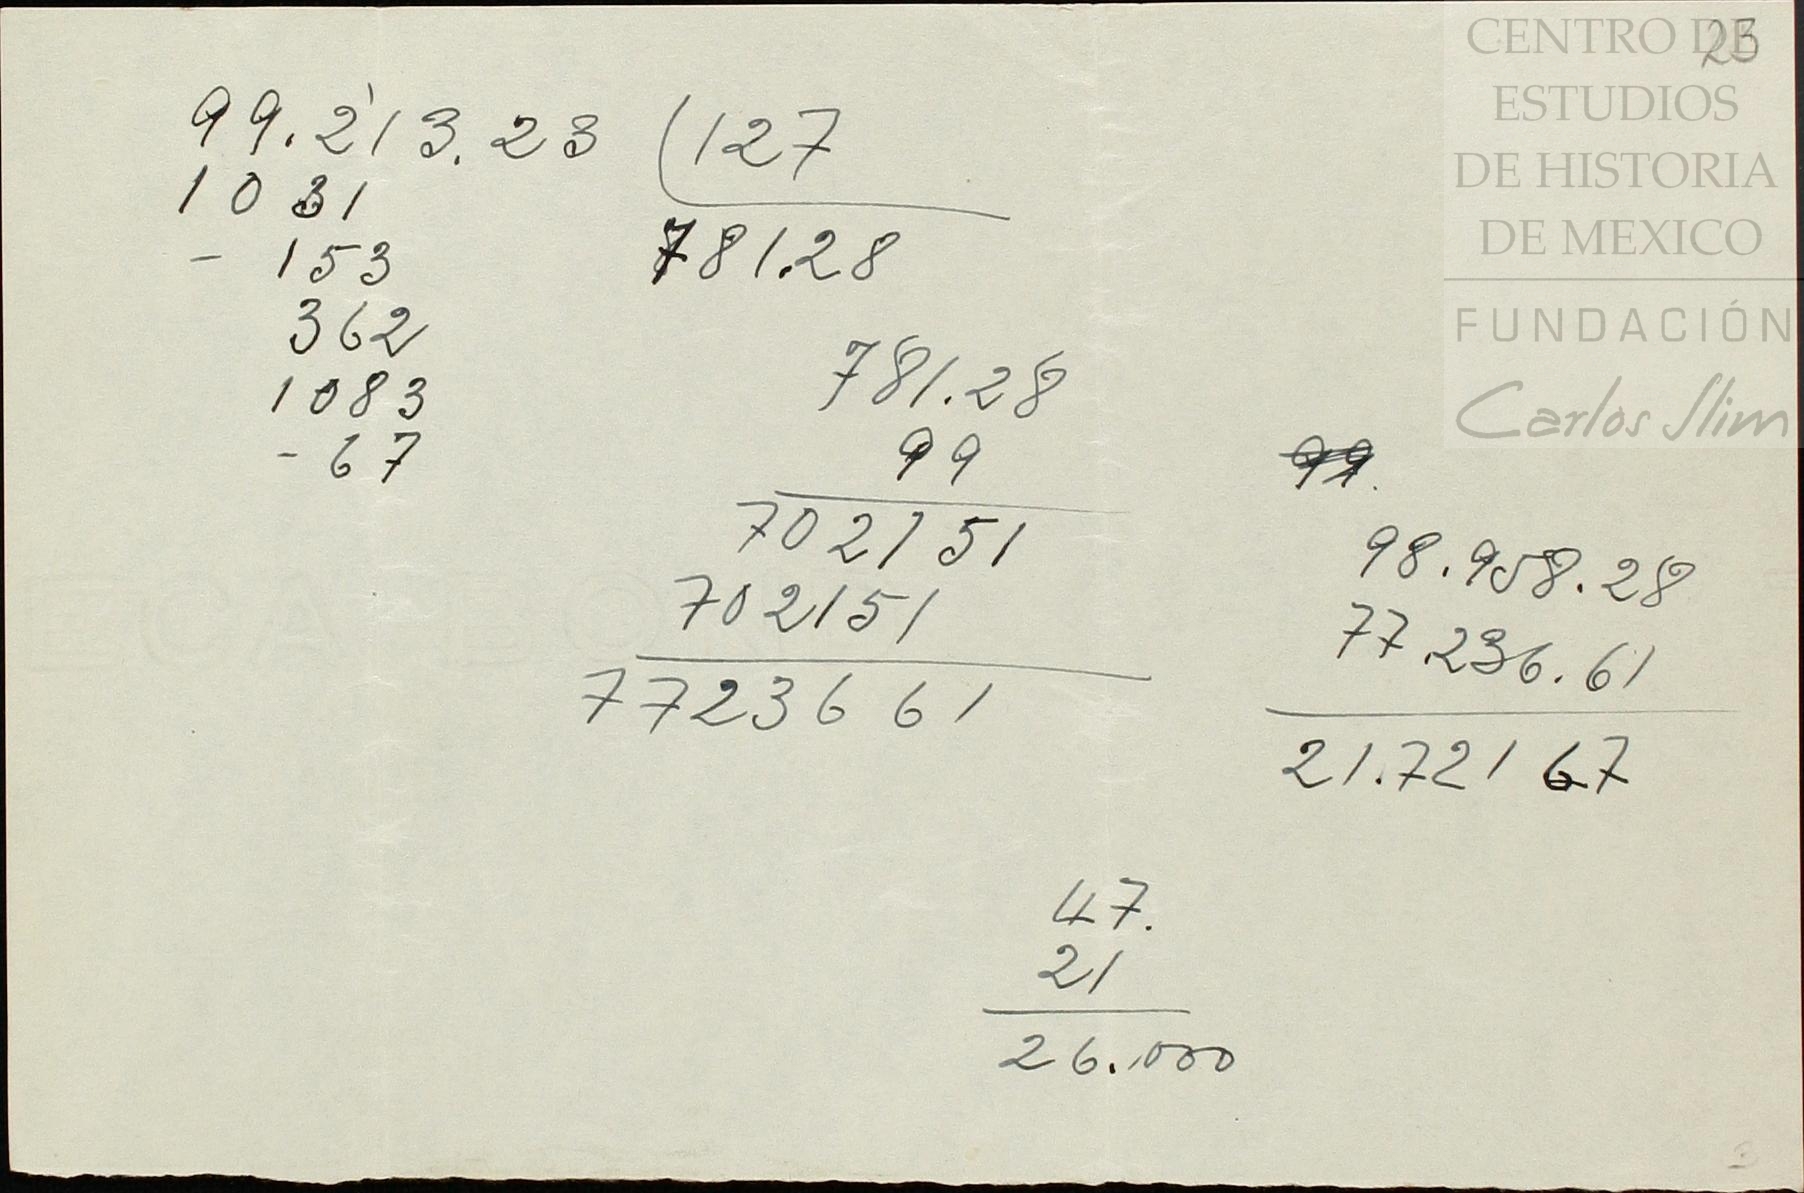 23
CENTRO DE
ESTUDIOS
DE HISTORIA
DE MEXICO
FUNDACIÓN
Carlos Slim
99.213.23 (127
1031
- 153
362
1083
- 67
781.28
781.28
99
702151
702151
7723661
99.
98.958.28
77.236.61
21.721 67
47.
21
26.000